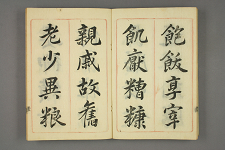 飽飫享宰
飢厭糟糠
親戚故舊
老少異粮